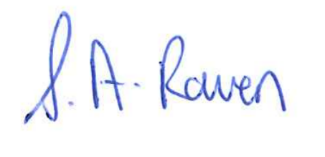 S. A. Raven